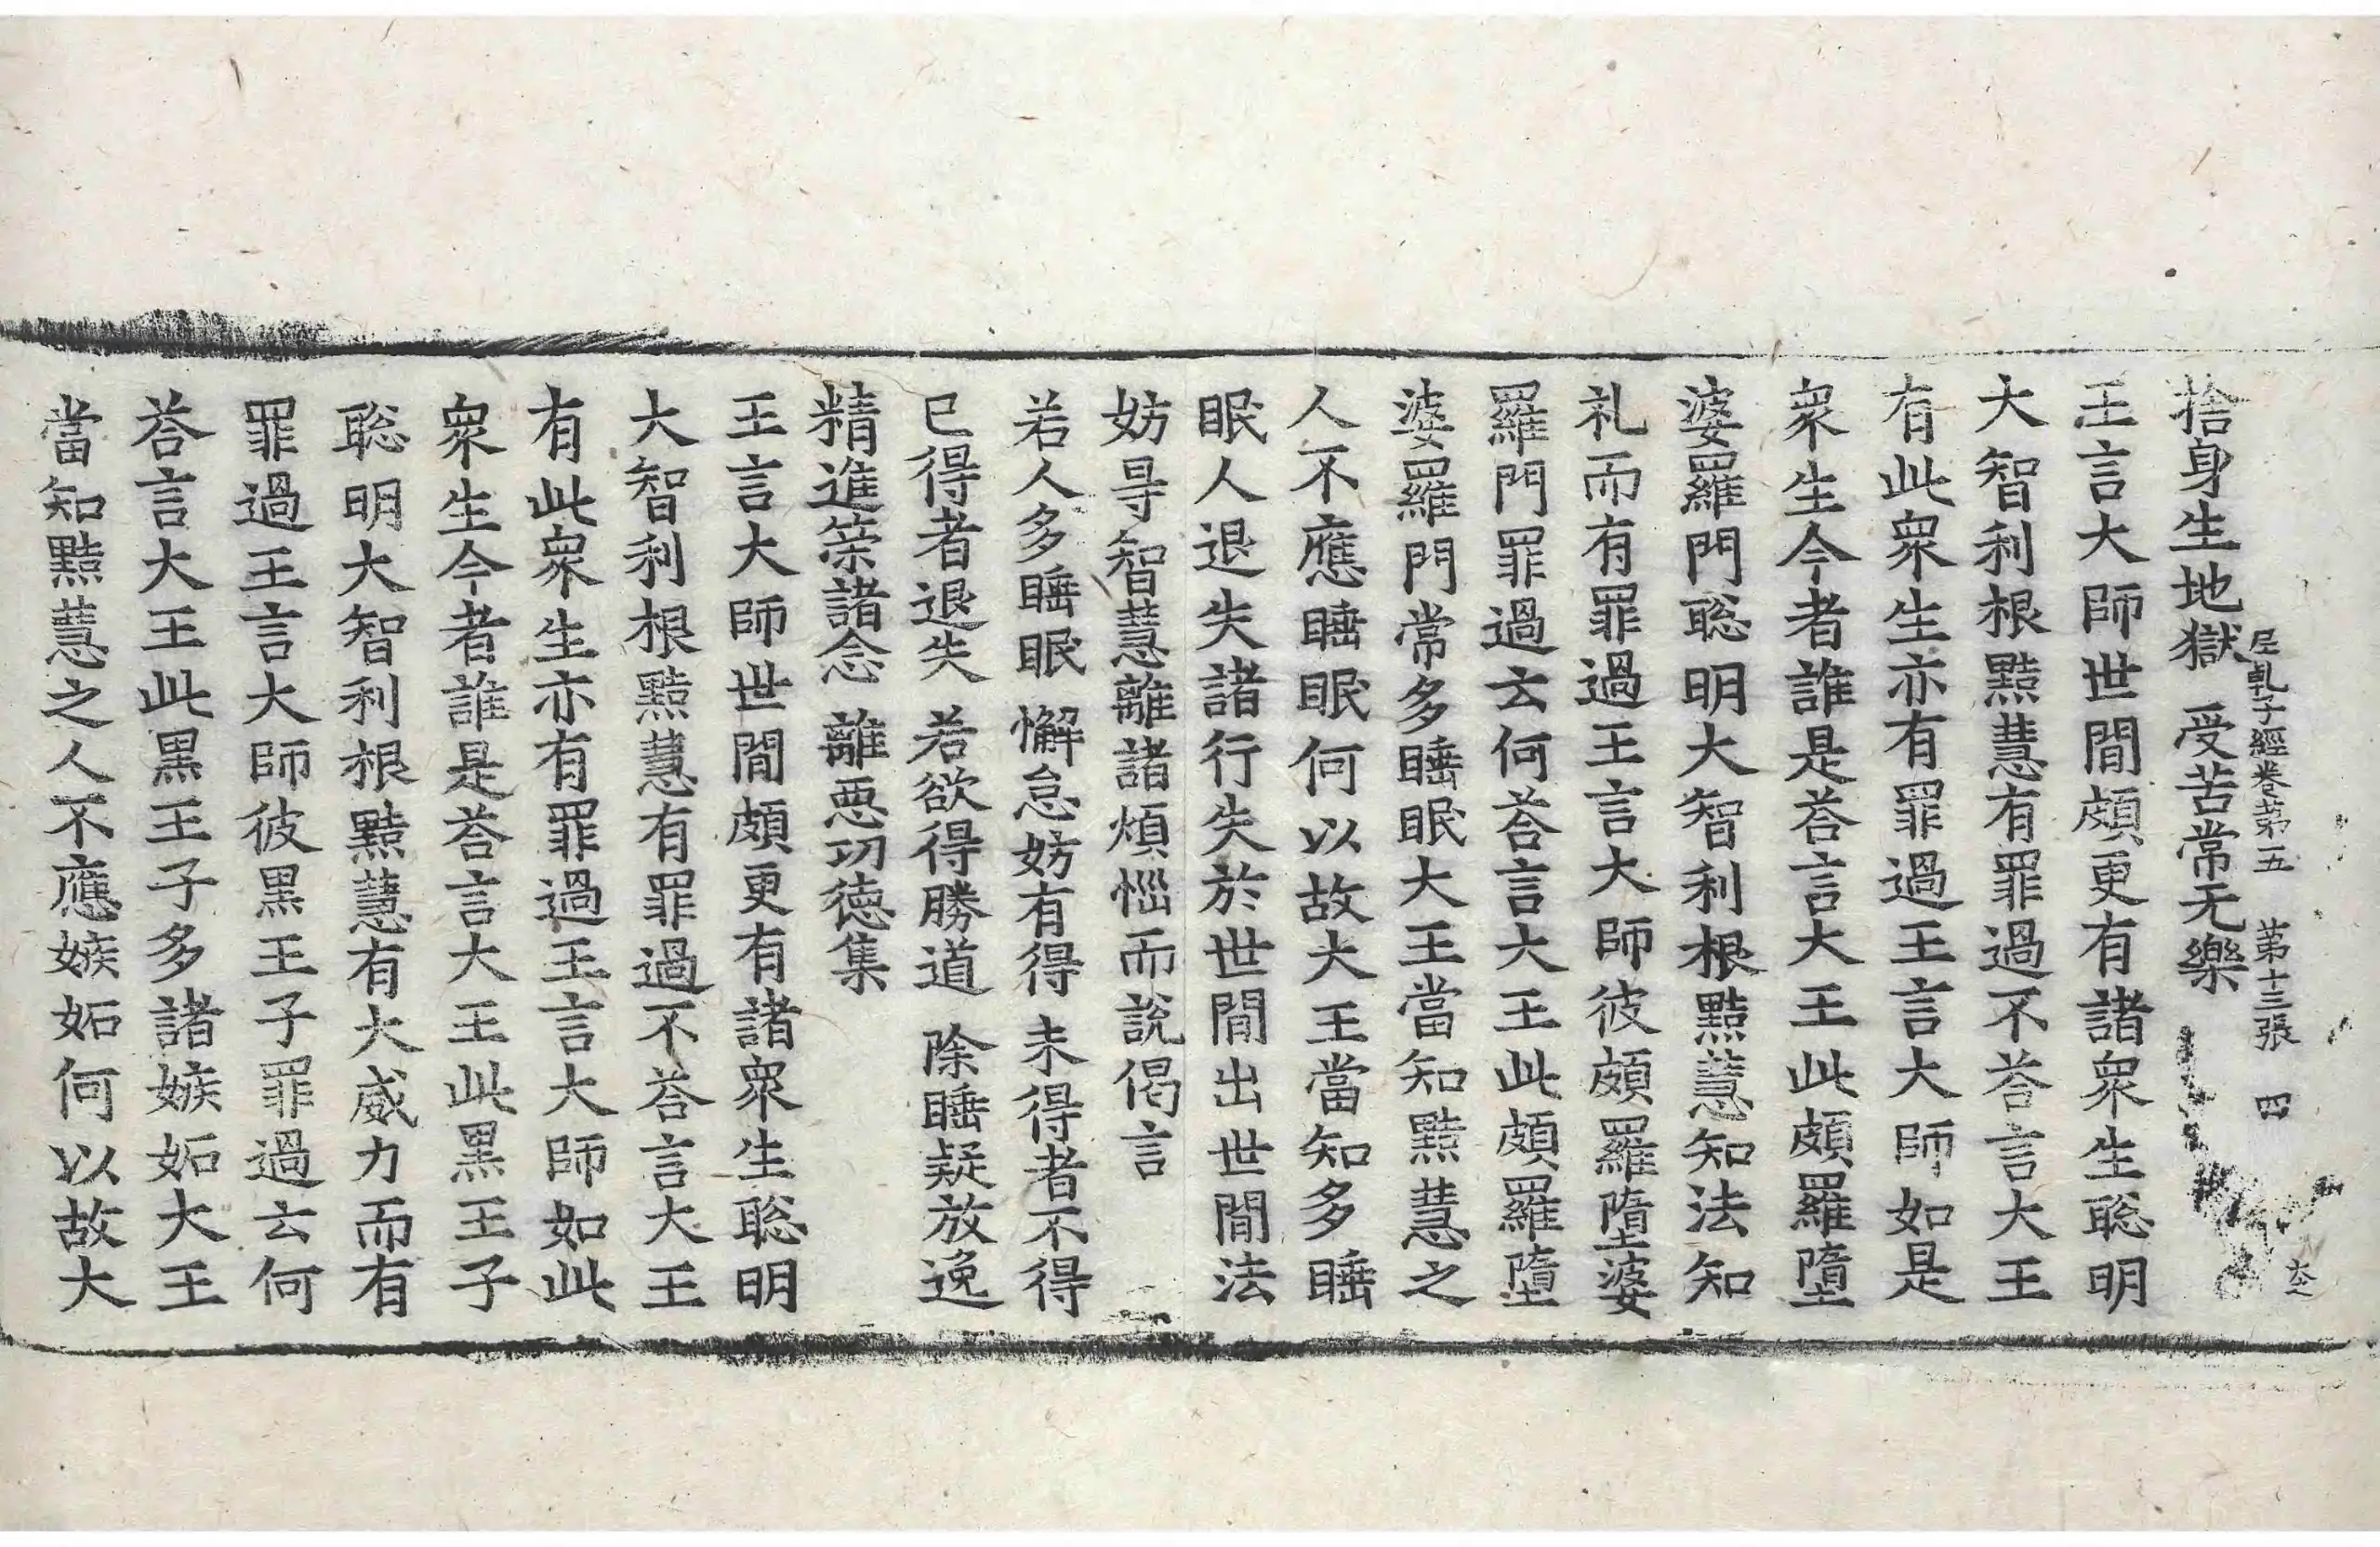 尼乹子經卷苐五　苐十三張　四
捨身生地獄　受苦常无樂
王言大師世間頗更有諸衆生聡明
大智利根黠慧有罪過不荅言大王
有此衆生亦有罪過王言大師如是
衆生今者誰是荅言大王此頗羅墮
婆羅門聡明大智利根黠慧知法知
礼而有罪過王言大師彼頗羅墮婆
羅門罪過云何荅言大王此頗羅墮
婆羅門常多睡眠大王當知黠慧之
人不應睡眠何以故大王當知多睡
眠人退失諸行失於世間出世間法
妨㝵智慧離諸煩惱而說偈言
若人多睡眠　懈怠妨有得　未得者不得
已得者退失　若欲得勝道　除睡疑放逸
精進策諸念　離惡功德集
王言大師世間頗更有諸衆生聡明
大智利根黠慧有罪過不荅言大王
有此衆生亦有罪過王言大師如此
衆生今者誰是荅言大王此黒王子
聡明大智利根黠慧有大威力而有
罪過王言大師彼黒王子罪過云何
荅言大王此黒王子多諸嫉妬大王
當知黠慧之人不應嫉妬何以故大